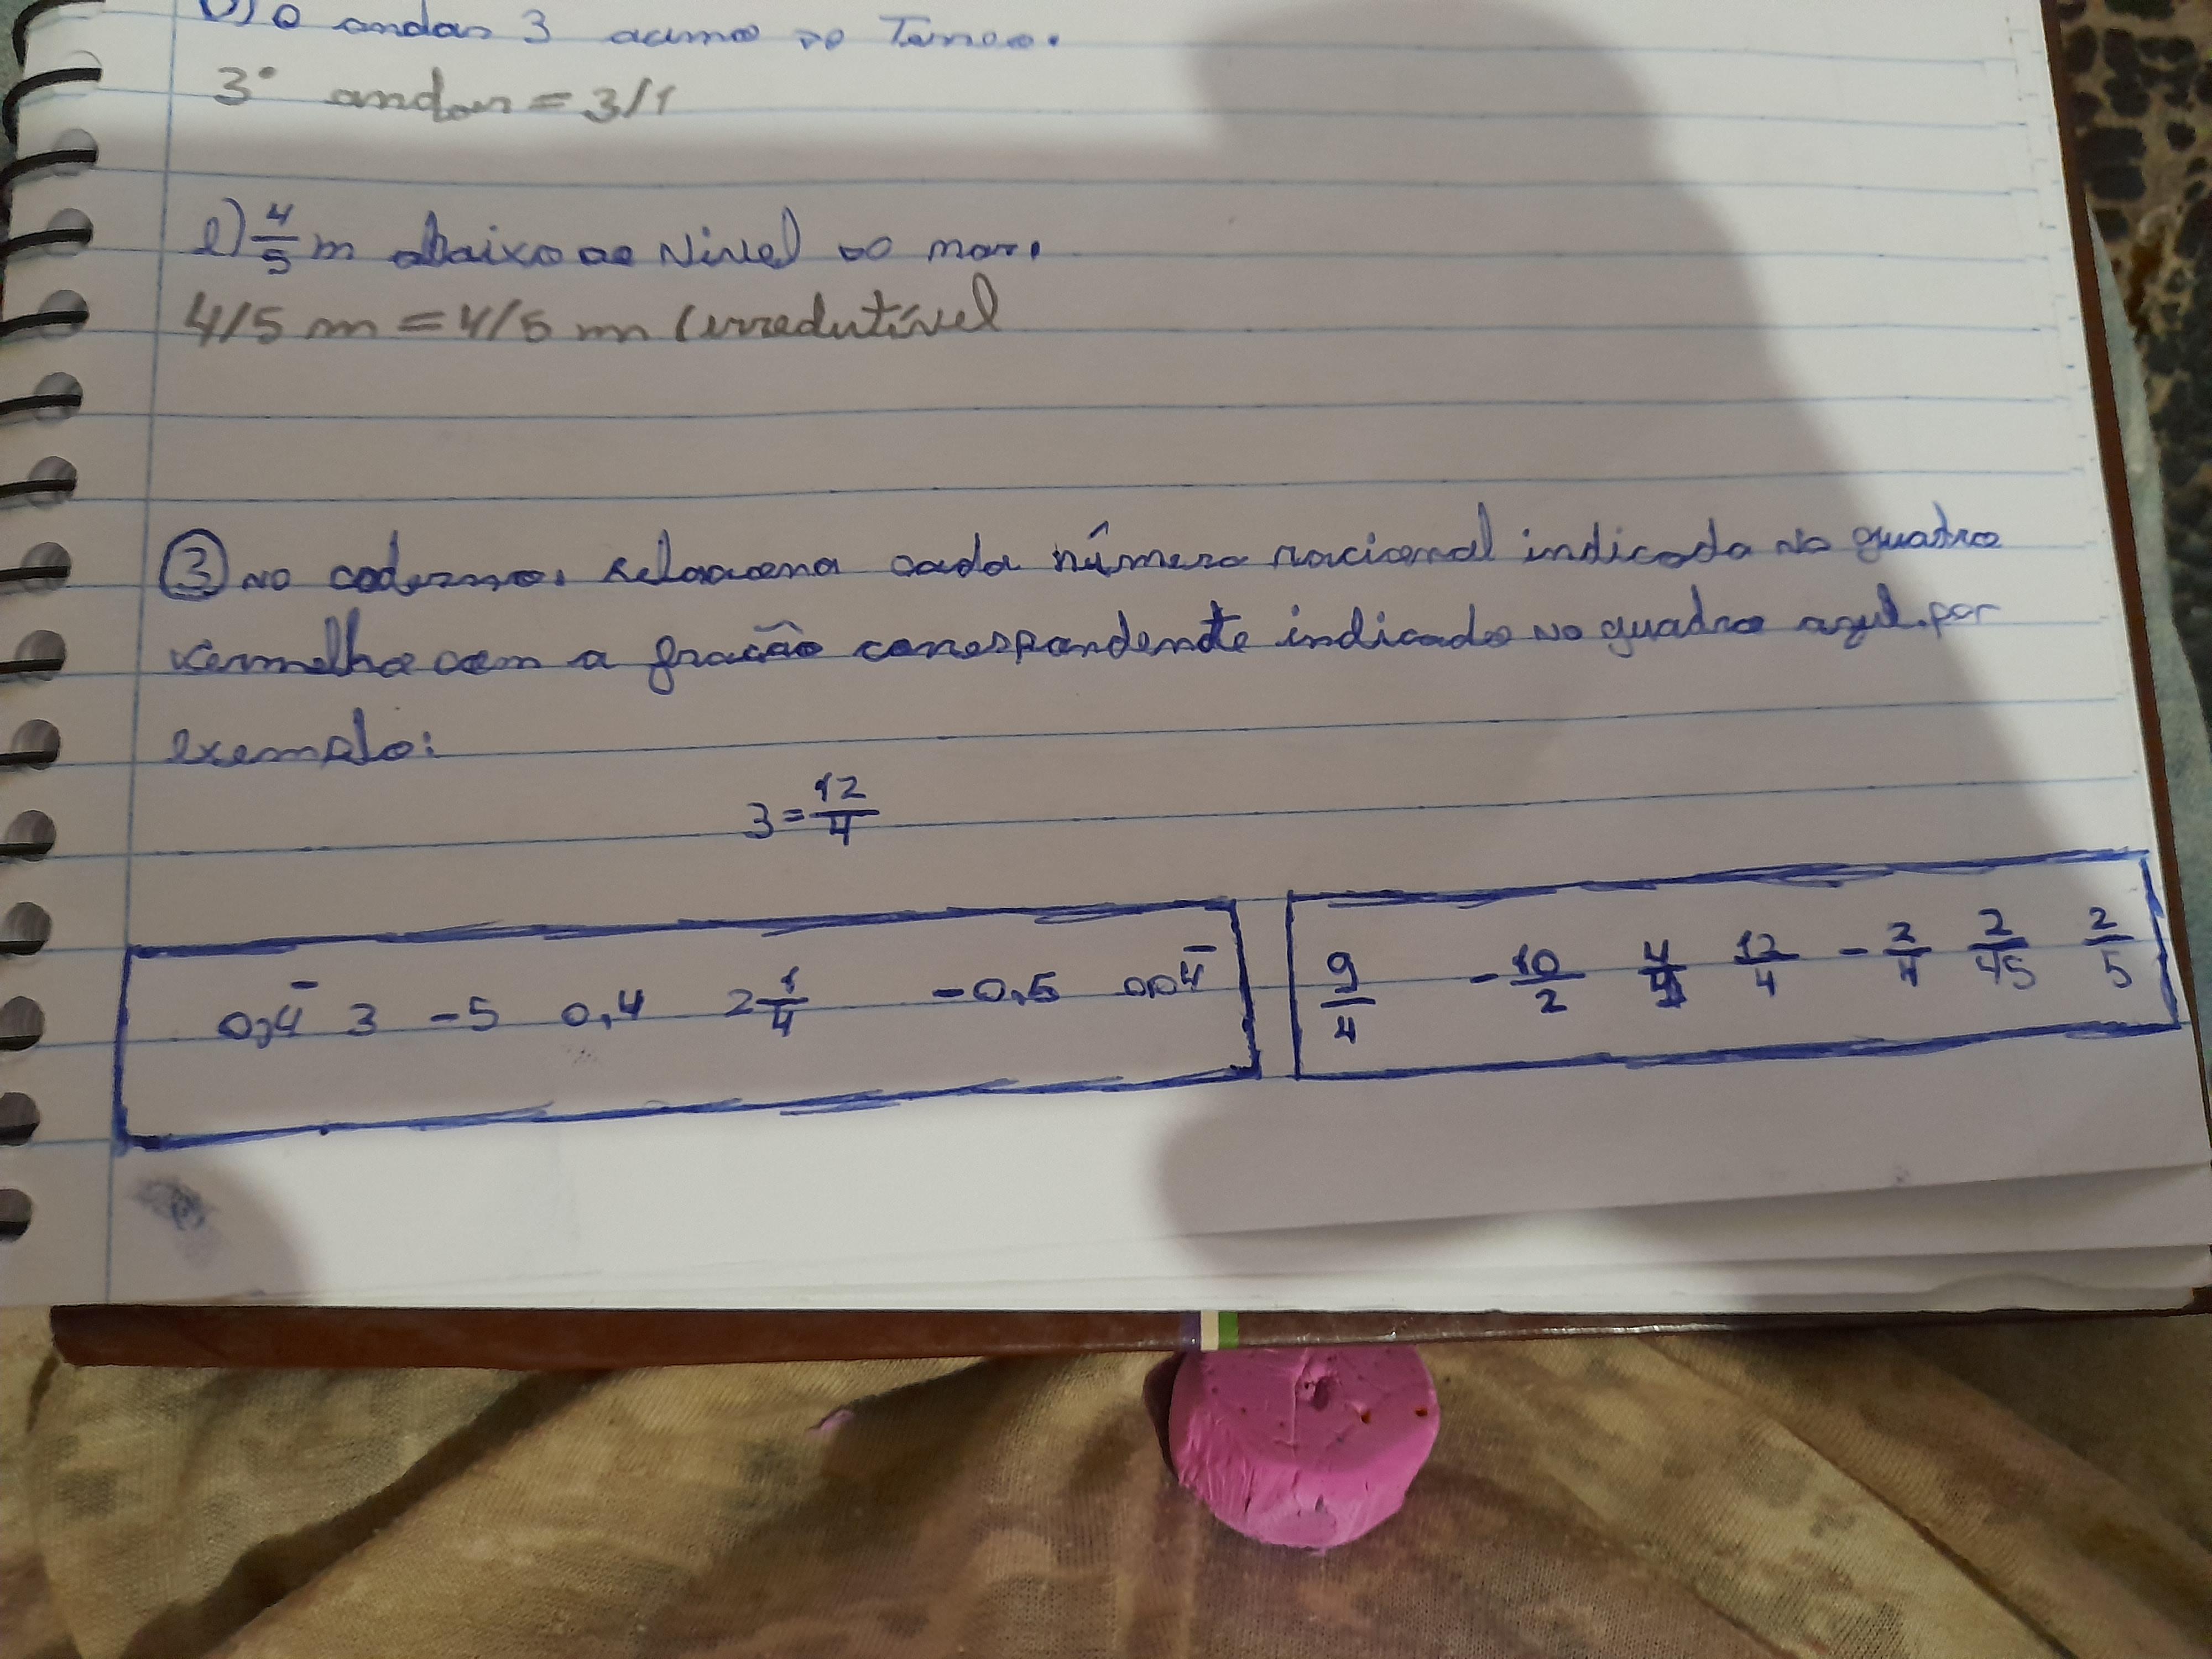 D) O andar 3 acima do Terreo.
3° andar = 3/1
e) 4/5 m abaixo do Nivel do mar.
4/5 m = 4/5 m (irredutível
③ No caderno, relaciona cada número racional indicada no quadro
vermelho com a fração correspondente indicado no quadro azul. por
exemplo:
3 = 12/4
0,4̅ 3 -5 0,4 2 1/4 -0,5 0,04̅
9/4 -10/2 4/9 12/4 -2/4 2/45 2/5